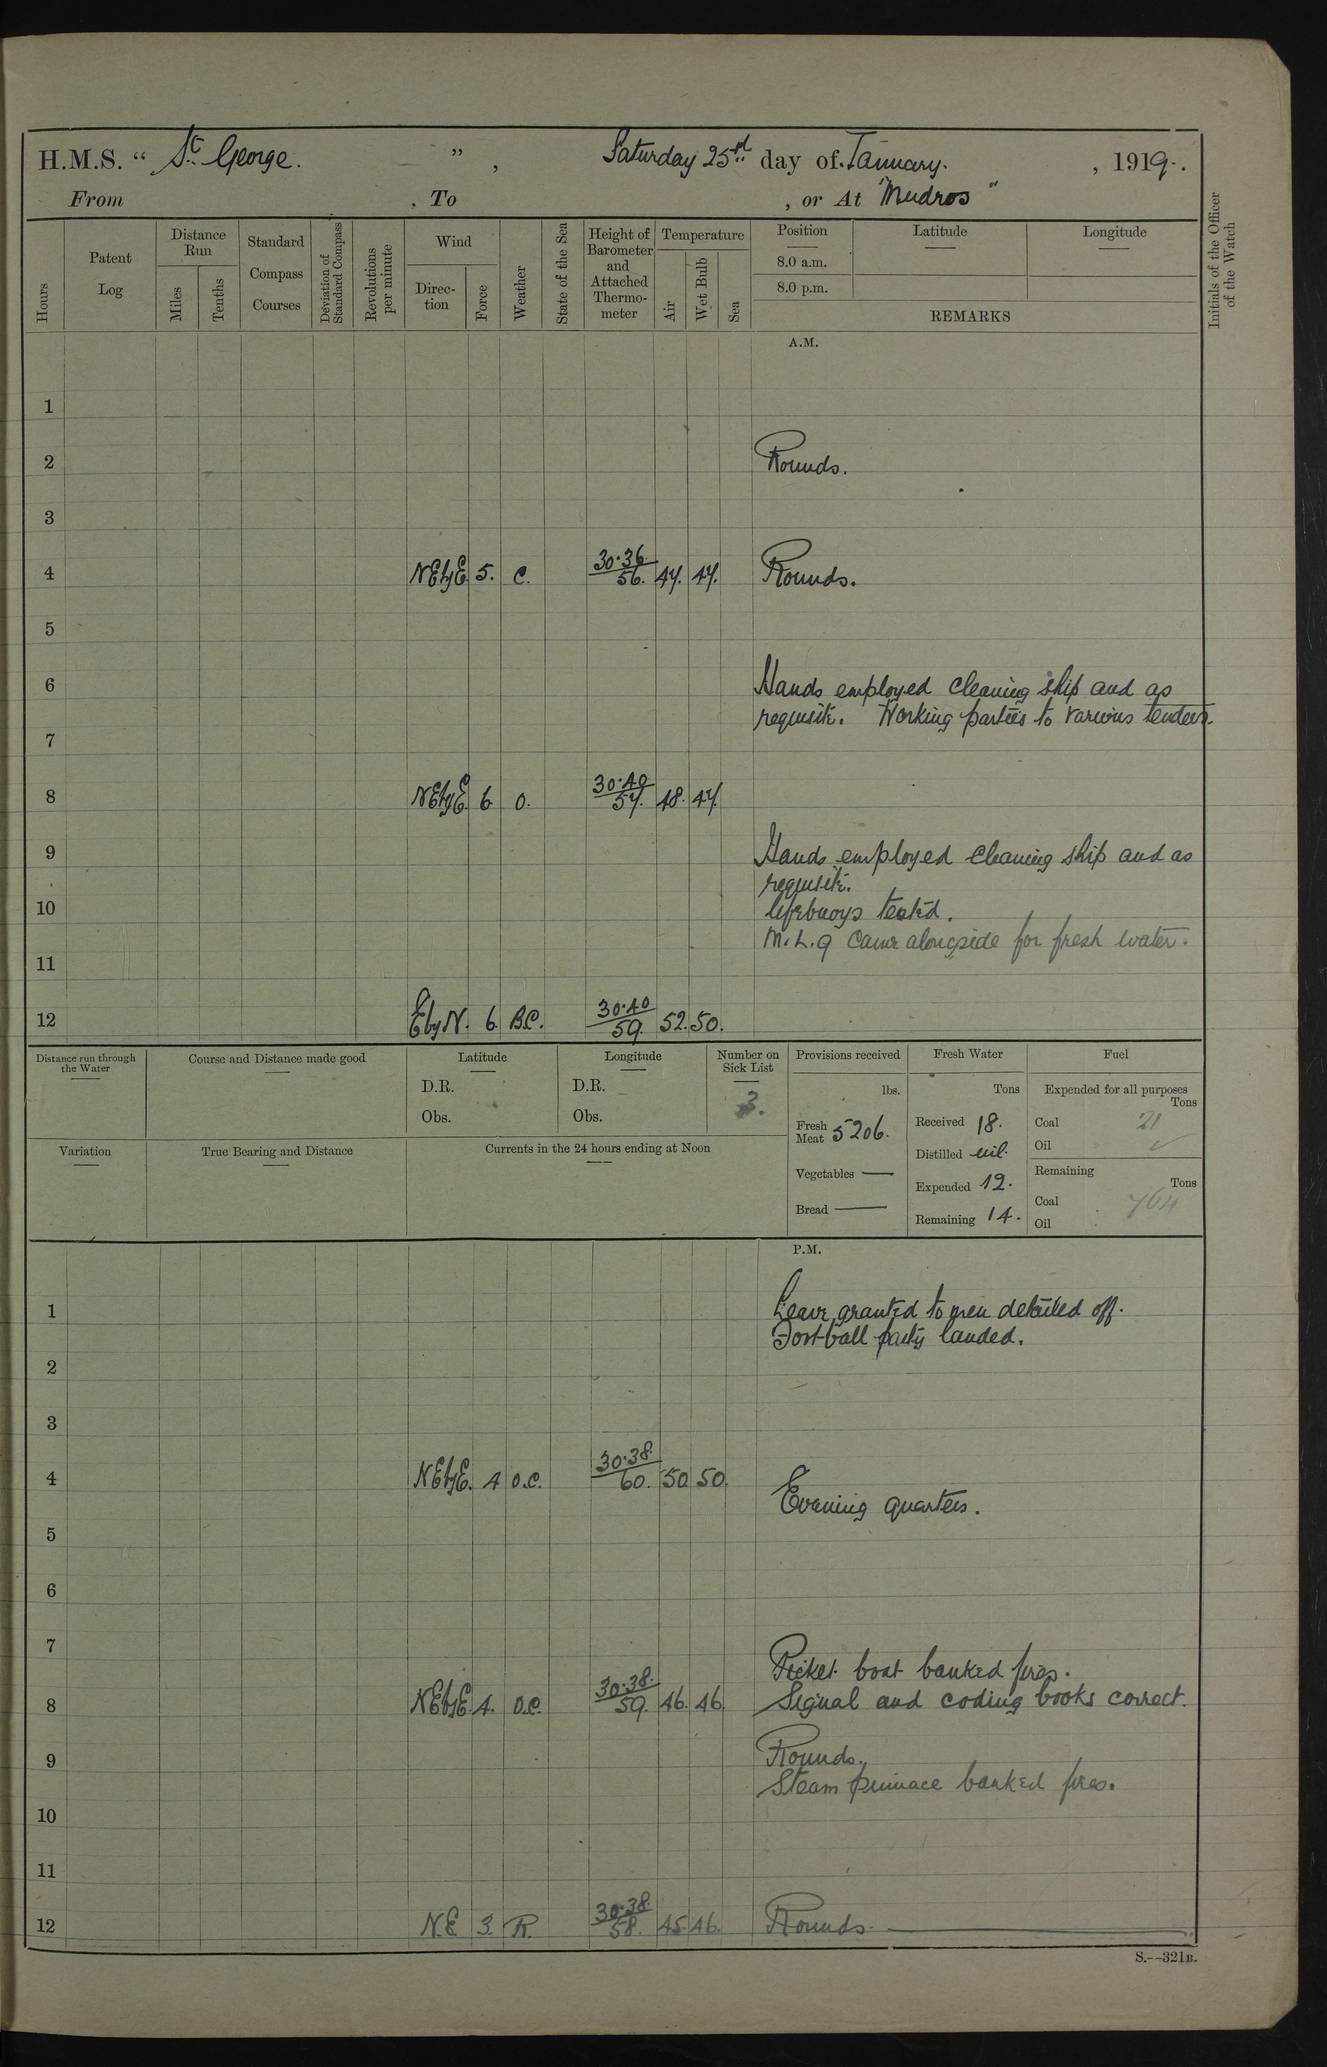 H.M.S. “ St. George. ” , Saturday 25rd day of January. , 1919.
From . To , or At "Mudros"
Hours
Patent Log
Distance Run
Miles
Tenths
Standard Compass Courses
Deviation of Standard Compass
Revolutions per minute
Wind
Direction
Force
Weather
State of the Sea
Height of Barometer and Attached Thermometer
Temperature
Air
Wet Bulb
Sea
Position
8.0 a.m.
8.0 p.m.
Latitude
Longitude
REMARKS
Initials of the Officer of the Watch
A.M.
1
2 Rounds.
3
4 NEbyE 5. C. 30.36 56. 47. 47. Rounds.
5
6 Hands employed cleaning ship and as
requisite. Working parties to various tenders.
7
8 NEbyE 6 O. 30.40 57. 48. 47.
9 Hands employed cleaning ship and as
requisite.
10 lifebuoys tested.
M.L.9 came alongside for fresh water.
11
12 EbyN. 6. B.C. 30.40 59. 52. 50.
Distance run through the Water
Course and Distance made good
Latitude
D.R.
Obs.
Longitude
D.R.
Obs.
Number on Sick List
3.
Variation
True Bearing and Distance
Currents in the 24 hours ending at Noon
Provisions received
lbs.
Fresh Meat 5206.
Vegetables —
Bread —
Fresh Water
Tons
Received 18.
Distilled nil.
Expended 12.
Remaining 14.
Fuel
Expended for all purposes
Tons
Coal 21
Oil ✓
Remaining
Tons
Coal 764
Oil
P.M.
1 Leave granted to men detailed off.
Football party landed.
2
3
4 NEbyE. 4 O.C. 30.38. 60. 50 50.
Evening quarters.
5
6
7
Picket boat banked fires.
8 NEbyE. 4. O.C. 30.38. 59. 46. 46. Signal and coding books correct.
9 Rounds.
Steam pinnace banked fires.
10
11
12 N.E. 3. R. 30.38. 58. 45 46. Rounds.
S.--321B.